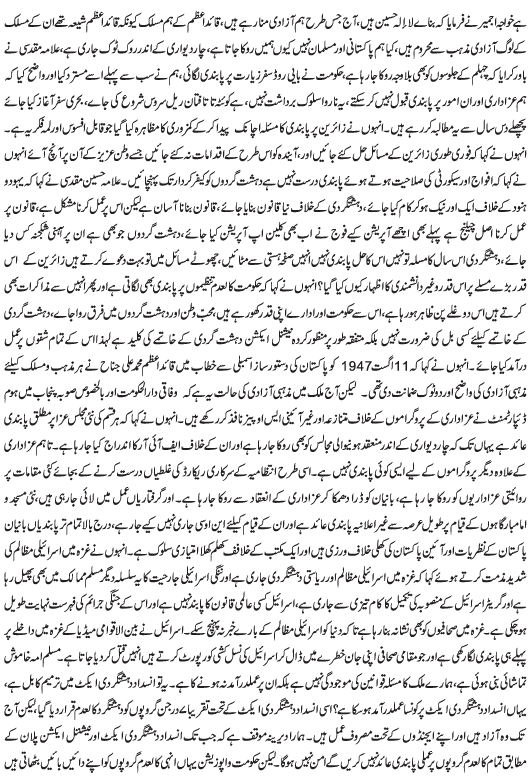 ہے خواجہ اجمیر نے فرمایا کہ بنائے لا الہ حسین ہیں، آج جس طرح ہم آزادی منا رہے ہیں، قائد اعظم کے ہم مسلک کیونکہ قائد اعظم شیعہ تھے ان کے
کے لوگ آزادی مذہب سے محروم ہیں، کیا ہم پاکستانی اور مسلمان نہیں کیوں ہمیں روکا جاتا ہے، چار دیواری کے اندر روک ٹوک جاری ہے، علامہ مقدسی نے
باور کرایا کہ چہلم کے جلوسوں کو بھی بلاوجہ روکا جا رہا ہے، حکومت نے بائی روڈ سفر زیارت پر پابندی لگائی، ہم نے سب سے پہلے اسے مسترد کیا اور واضح کیا کہ
ہم عزاداری اور ان امور پر پابندی قبول نہیں کر سکتے، یہ ناروا سلوک برداشت نہیں ہے کوئٹہ تا تافتان ریل سروس شروع کی جائے، بحری سفر آغاز کیا جائے
پچھلے دس سال سے یہ مطالبہ کر رہے ہیں۔ انہوں نے زائرین پر پابندی کا مسئلہ اچانک پیدا کر کے کمزوری کا مظاہرہ کیا گیا جو قابل افسوس اور لمحہ فکریہ ہے۔
انہوں نے کہا کہ فوری طوری زائرین کے مسائل حل کئے جائیں اور، آئندہ کو اس طرح کے اقدامات نہ کئے جائیں جسے وطن عزیز کے آن پر آنچ آئے انہوں
نے کہا کہ افواج اور سیکورٹی کی صلاحیت ہوتے ہوئے پابندی درست نہیں ہے دہشت گردوں کو کیفر کردار تک پہنچائیں۔ علامہ حسین مقدسی نے کہا کہ یہود و
ہنود کے خلاف ایک اور نیک ہو کر کام کیا جائے، دہشتگردی کے خلاف نیا قانون بنایا جائے، قانون بنانا آسان ہے لیکن اس پر عمل کرنا مشکل ہے، قانون پر
عمل کرنا اصل چیلنج ہے پہلے بھی اچھے آپریشن کیے فوج نے اب بھی کلین اپ آپریشن کیا جائے، دہشت گردوں جو بھی ہے ان پر آہنی شکنجہ کس دیا
جائے، دہشتگردی اس سال کا مسئلہ تو نہیں اس کا حل پابندی نہیں انہیں صفحہ ہستی سے مٹائیں، چھوٹے مسائل میں تو بہت دعوے کرتے ہیں زائرین کے اس
قدر بڑے مسئلے پر اس قدر وغیر دانشمندی کا اظہار کیوں کیا گیا؟ انہوں نے کہا کہ حکومت کالعدم تنظیموں پر پابندی بھی لگاتی ہے اور پھر انہیں سے مذاکرات بھی
کرتے ہیں اس دوغلے پن ظاہر ہو رہا ہے، اس سے حکومت اور ادارے اپنی قدر کھو رہے ہیں، محب وطن اور دہشت گردوں میں فرق روا جائے، دہشت گردی
کے خاتمے کیلئے کسی بل کی ضرورت نہیں بلکہ متفقہ طور پر منظور کردہ نیشنل ایکشن دہشت گردی کے خاتمے کی کلید ہے لہذا اس کے تمام شقوں پر عمل
درآمد کیا جائے۔ انہوں نے کہا کہ 11 اگست 1947 کو پاکستان کی دستور ساز اسمبلی سے خطاب میں قائد اعظم محمد علی جناح نے ہر مذہب و مسلک کیلئے
مذہبی آزادی کی واضح اور دوٹوک ضمانت دی تھی۔ لیکن آج ملک میں مذہبی آزادی کی حالت یہ ہے کہ وفاقی دارالحکومت اور بالخصوص صوبہ پنجاب میں ہوم
ڈیپارٹمنٹ نے عزاداری کے پروگراموں کے خلاف متنازعہ اور غیر آئینی ایس او پیز نافذ کر رکھے ہیں۔ انہوں نے کہا کہ ہر قسم کی نئی مجلس عزا پر مطلق پابندی
عائد ہے یہاں تک کہ چار دیواری کے اندر منعقد ہونیوالی مجالس کو بھی روکا جا رہا ہے اور ان کے خلاف ایف آئی آر کا اندراج کیا جا رہا ہے۔ تاہم عزاداری
کے علاوہ دیگر پروگراموں کے لیے ایسی کوئی پابندی نہیں ہے۔ اسی طرح انتظامیہ کے سرکاری ریکارڈ کی غلطیاں درست کرنے کے بجائے کئی مقامات پر
روایتی عزاداریوں کو روکا جا رہا ہے، بانیان کو ڈرا دھمکا کر عزاداری کے انعقاد سے روکا جا رہا ہے۔ اور گرفتاریاں عمل میں لائی جا رہی ہیں، نئی مسجد و
امام بارگاہوں کے قیام پر طویل عرصہ سے غیر اعلانیہ پابندی عائد ہے اور ان کے قیام کیلئے این او سی جاری نہیں کیے جا رہے، درج بالا تمام تر پابندیاں بانیان
پاکستان کے نظریات اور آئین پاکستان کی کھلی خلاف ورزی ہیں اور ایک مکتب کے خلاف کھلم کھلا امتیازی سلوک ہے۔ انہوں نے غزہ میں اسرائیلی مظالم کی
شدید مذمت کرتے ہوئے کہا کہ غزہ میں اسرائیلی مظالم اور ریاستی دہشتگردی جاری ہے اور ننگی اسرائیلی جارحیت کا یہ سلسلہ دیگر مسلم ممالک میں بھی پھیل رہا
ہے اور گریٹر اسرائیل کے منصوبہ کی تکمیل کا کام تیزی سے جاری ہے، اسرائیل کسی عالمی قانون کا پابند نہیں ہے اور اس کے جنگی جرائم کی فہرست نہایت طویل
ہو چکی ہے۔ غزہ میں صحافیوں کو بھی نشانہ بنا رہا ہے تا کہ دنیا کو اسرائیلی مظالم کے بارے خبر نہ پہنچ سکے۔ اسرائیل نے بین الاقوامی میڈیا کے غزہ میں داخلے پر
پہلے ہی پابندی لگا رکھی ہے اور جو مقامی صحافی اپنی جان خطرے میں ڈال کر اسرائیل کی نسل کشی کو رپورٹ کرتے ہیں انہیں قتل کر دیا جاتا ہے۔ مسلم امہ خاموش
تماشائی بنی ہوئی ہے، ہمارے ملک کا مسئلہ قوانین کی موجودگی نہیں ہے بلکہ ان پر عملدرآمد نہ ہونے کا ہے۔ یہ تو انسداد دہشتگردی ایکٹ میں ترمیم کا بل ہے،
تو انسداد دہشتگردی ایکٹ پر کونسا عملدرآمد ہو سکا ہے؟ اسی انسداد دہشتگردی ایکٹ کے تحت تقریبا ۷ درجن گروپوں کو دہشتگرد کالعدم قرار دیا گیا، لیکن آج
تک وہ آزاد ہیں اور اپنے ایجنڈوں کے تحت مصروف عمل ہیں۔ ہمارا دیرینہ موقف ہے کہ جب تک انسداد دہشتگردی ایکٹ اور نیشنل ایکشن پلان کے
مطابق تمام کالعدم گروپوں پر عملی پابندی عائد نہیں کریں گے امن نہیں ہوگا لیکن حکومت و اپوزیشن یہاں انہی کالعدم گروپوں کو اپنے دائیں بائیں بٹھاتی ہیں